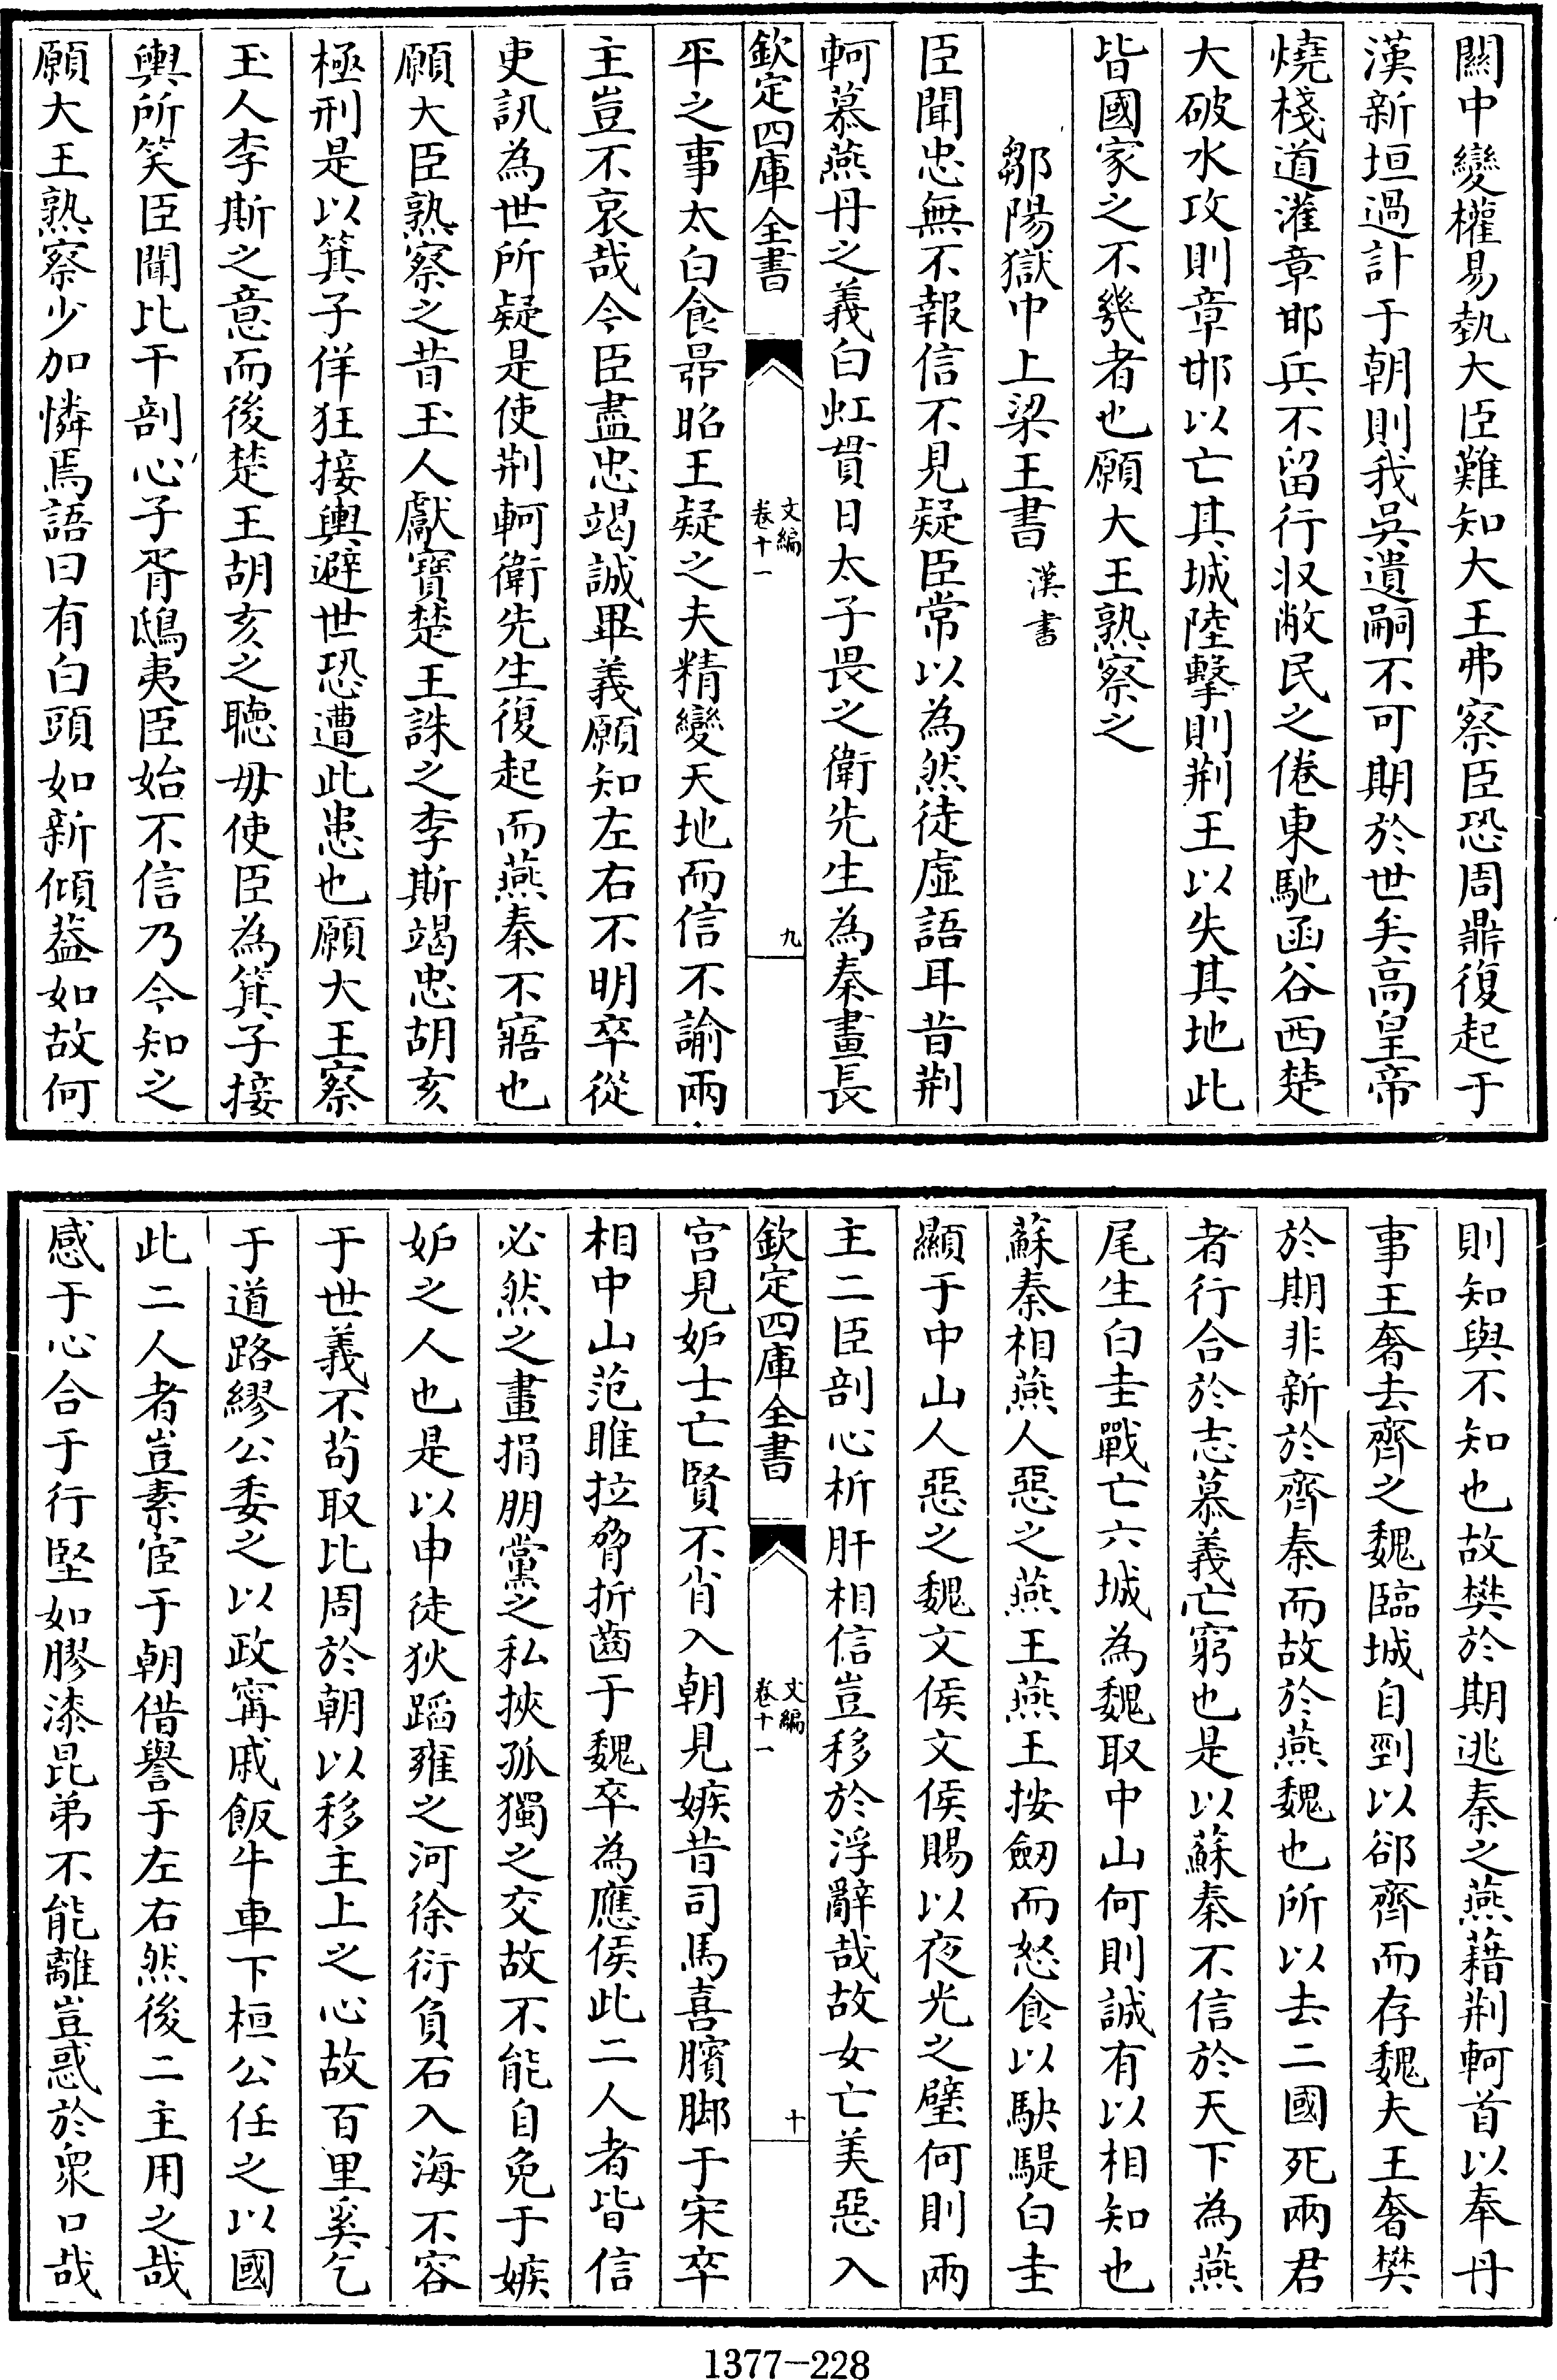 關中變權易埶大臣難知大王弗察臣恐周鼎復起于
漢新垣過計于朝則我吳遺嗣不可期於世矣高皇帝
燒棧道灌章邯兵不留行收敝民之倦東馳函谷西楚
大破水攻則章邯以亡其城陸擊則荆王以失其地此
皆國家之不幾者也願大王熟察之
鄒陽獄中上梁王書 漢書
臣聞忠無不報信不見疑臣常以為然徒虛語耳昔荆
軻慕燕丹之義白虹貫日太子畏之衛先生為秦畫長
欽定四庫全書 文編 卷十一 九
平之事太白食昴昭王疑之夫精變天地而信不諭兩
主豈不哀哉今臣盡忠竭誠畢義願知左右不明卒從
吏訊為世所疑是使荆軻衛先生復起而燕秦不寤也
願大臣熟察之昔玉人獻寶楚王誅之李斯竭忠胡亥
極刑是以箕子佯狂接輿避世恐遭此患也願大王察
玉人李斯之意而後楚王胡亥之聴毋使臣為箕子接
輿所笑臣聞比干剖心子胥鴟夷臣始不信乃今知之
願大王熟察少加憐焉語曰有白頭如新傾葢如故何
則知與不知也故樊於期逃秦之燕藉荆軻首以奉丹
事王奢去齊之魏臨城自剄以郤齊而存魏夫王奢樊
於期非新於齊秦而故於燕魏也所以去二國死兩君
者行合於志慕義亡窮也是以蘇秦不信於天下為燕
尾生白圭戰亡六城為魏取中山何則誠有以相知也
蘇秦相燕人惡之燕王燕王按劒而怒食以駃騠白圭
顯于中山人惡之魏文侯文侯賜以夜光之璧何則兩
主二臣剖心析肝相信豈移於浮辭哉故女亡美惡入
欽定四庫全書 文編 卷十一 十
宫見妒士亡賢不肖入朝見嫉昔司馬喜臏脚于宋卒
相中山范雎拉脅折齒于魏卒為應侯此二人者皆信
必然之畫捐朋黨之私挾孤獨之交故不能自免于嫉
妒之人也是以申徒狄蹈雍之河徐衍負石入海不容
于世義不苟取比周於朝以移主上之心故百里奚乞
于道路繆公委之以政甯戚飯牛車下桓公任之以國
此二人者豈素宦于朝借譽于左右然後二主用之哉
感于心合于行堅如膠漆昆弟不能離豈惑於衆口哉
1377-228